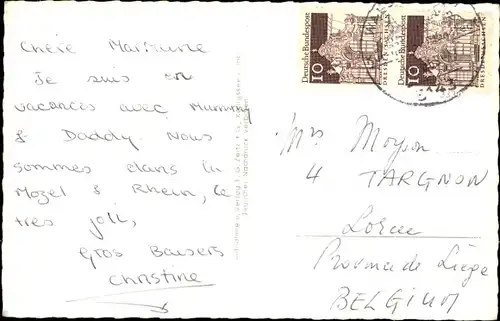 Chère Marianne
Je suis en
vacances avec Mummy
& Daddy. Nous
sommes dans la
Mozel & Rhein, le
très joli,
Gros Baisers
Christine
Deutsche Bundespost
10
DRESDEN-SACHSEN
Deutsche Bundespost
10
DRESDEN-SACHSEN
Mrs Moyson
4 TARGNON
Lorcé
Province de Liège
BELGIUM